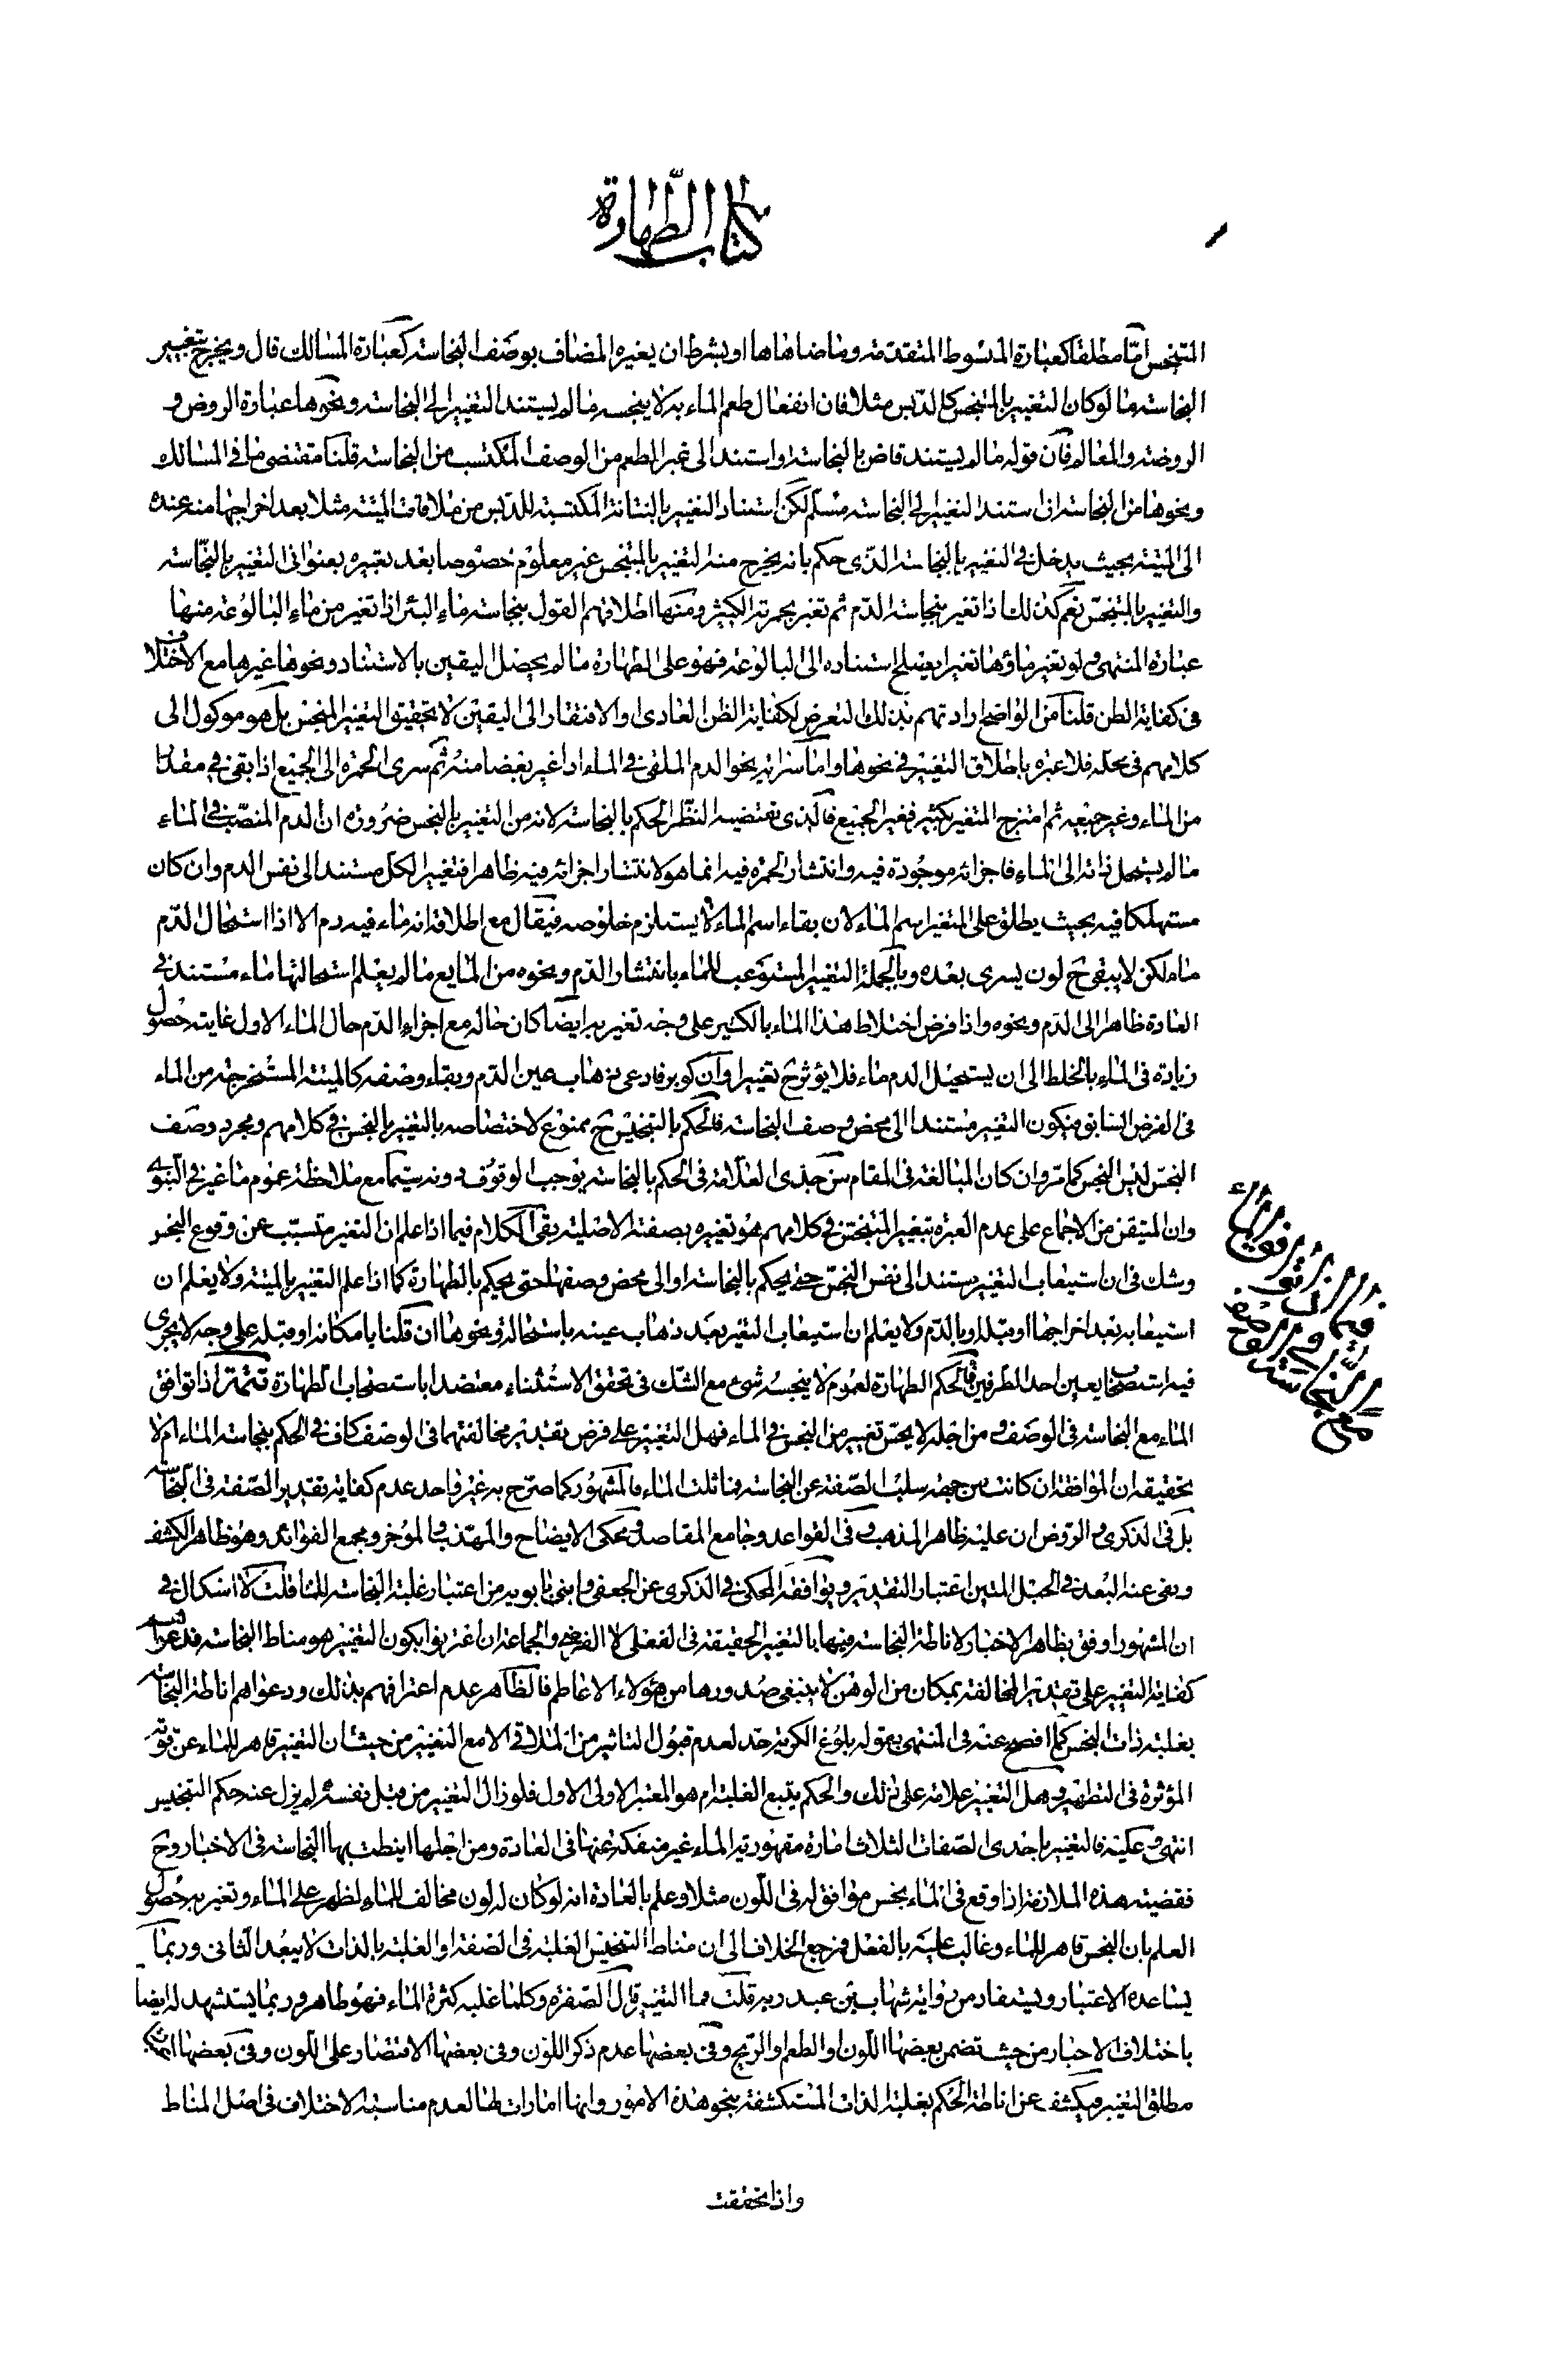 كتاب الطهارة
المتنجس امّا مطلقا كعبارة المبسوط المتقدمة وما ضاهاها او بشرط ان يغيره المضاف بوصف النجاسة كعبارة المسالك قال ويخرج بتغيير
النجاسة ما لو كان التغيير بالمتنجس كالدبس مثلا فان انفعال طعم الماء به لا ينجسه ما لم يستند التغيير الى النجاسة ونحوها عبارة الروض و
الروضة والمقاله فان قوله ما لم يستند قاض بالنجاسة لو استند الى غير الطعم من الوصف المكتسب من النجاسة قلنا مقتضى ما في المسالك
ونحوها من النجاسة ان استند التغيير الى النجاسة مسلم لكن استناد التغيير بالنتانة المكتسبة للدبس من ملاقات الميتة مثلا بعد اخراجها منه عنده
الى الميتة بحيث يدخل في التغيير بالنجاسة الذى حكم بانه يخرج منه التغيير بالمتنجس غير معلوم خصوصا بعد تعبيره بعنوانى التغيير بالنجاسة
والتغيير بالمتنجس نعم كذلك اذا تغير بنجاسة الدم ثم تغير بحمرته الكثير ومنها اطلاقهم القول بنجاسة ماء البئر اذا تغير من ماء البالوعة منها
عبارة المنتهى ولو تغير ماؤها تغيرا يصلح استناده الى البالوعة فهو على الطهارة ما لم يحصل اليقين بالاستناد ونحوها غيرها مع الاختلاف
في كفاية الظن قلنا من الواضح ارادتهم بذلك التعرض لكفاية الظن العادى او الافتقار الى اليقين لا تحقيق التغيير المنجس بل هو موكول الى
كلامهم في محله فلا عبرة باطلاق التغيير في نحوها واما سراية نحو الدم الملقى في الماء اذا غير بعضا منه ثم سرى الحمرة الى الجميع اذا بقى فيه مقدار
من الماء وغير جميعه ثم امتزج المتغير بكثير فغير الجميع فالذى يقتضيه النظر الحكم بالنجاسة لانه من التغيير بالنجس ضرورة ان الدم المنصب في الماء
ما لم يستحل ذاته الى الماء فاجزائه موجودة فيه وانتشار الحمرة فيه انما هو لانتشار اجزائه فيه ظاهرا فتغيير الكل مستند الى نفس الدم وان كان
مستهلكا فيه بحيث يطلق على المتغير اسم الماء لان بقاء اسم الماء لا يستلزم خلوصه فيقال مع اطلاقه انه ماء فيه دم الا اذا استحال الدم
ماء لكن لا يبقى ح لون يسرى بعده وبالجملة التغيير المستوعب للماء بانتشار الدم ونحوه من المايع ما لم يعلم استحالتها ماء مستند في
العادة ظاهرا الى الدم ونحوه واذا فرض اختلاط هذا الماء بالكثير على وجه تغير به ايضا كان حاله مع اجزاء الدم حال الماء الاول غايته حصول
زيادة في الماء بالخلط الى ان يستحيل الدم ماء فلا يؤثر ح تغييرا وان كوبر فادعى ذهاب عين الدم وبقاء وصفه كالميتة المستخرجة من الماء
في الفرض السابق فيكون التغيير مستندا الى محض وصف النجاسة فالحكم بالتنجيس ح ممنوع لاختصاصه بالتغيير بالنجس في كلامهم ومجرد وصف
النجس ليس النجس كما مرّ وان كان المبالغة في المقام من جدى العلامة في الحكم بالنجاسة يوجب الوقوف دونه سيما مع ملاحظة عموم ما غير في النبوى
وان المتيقن من الاجماع على عدم العبرة بتغيير المتنجس في كلامهم هو تغييره بصفته الاصلية بقى الكلام فيما اذا علم ان التغير متسبب عن وقوع النجس
وشك في ان استيعاب التغيير يستند الى نفس النجس حتى يحكم بالنجاسة او الى محض وصفها حتى يحكم بالطهارة كما اذا علم التغير بالميتة ولا يعلم ان
استيعابه بعد اخراجها او قبله او بالدم ولا يعلم ان استيعاب التغير بعد ذهاب عينه باستحالة ونحوها ان قلنا بامكانه او قبله على وجه لا يجرى
فيه استصحاب يعين احد الطرفين فالحكم الطهارة لعموم لا ينجسه شئ مع الشك في تحقق الاستثناء معتضدا باستصحاب الطهارة تتمة اذا توافق
الماء مع النجاسة في الوصف ومن اجله لا يحسّ تغيير من النجس في الماء فهل التغيير على فرض تقدير مخالفتهما في الوصف كاف في الحكم بنجاسة الماء ام لا
تحقيقه ان الموافقة ان كانت من جهة سلب الصفة عن النجاسة فماثلت الماء فالمشهور كما صرّح به غير واحد عدم كفاية تقدير الصفة في النجاسة
بل في الذكرى والروض ان عليه ظاهر المذهب وفي القواعد وجامع المقاصد ومحكى الايضاح والمهذب والموجز ومجمع الفوائد وهو ظاهر الكشف
ونفى عنه البعد في الحبل المتين اعتبار التقدير ويوافقه المحكى في الذكرى عن الجعفى وابنى بابويه من اعتبار غلبة النجاسة للماء قلت لا اشكال في
ان المشهور اوفق بظاهر الاخبار لاناطة النجاسة فيها بالتغيير الحقيقة في الفعلى لا الفرضى والجماعة ان اعترفوا بكون التغيير هو مناط النجاسة فدعواهم
كفاية التغيير على تقدير المخالفة بمكان من الوهن لا ينبغى صدورها من هؤلاء الاعاظم فالظاهر عدم اعترافهم بذلك ودعواهم اناطة النجاسة
بغلبة ذات النجس كما افصح عنه في المنتهى بقوله بلوغ الكرية حد لعدم قبول التاثير من الملاقى الا مع التغيير من حيث ان التغيير قاهر للماء عن قوته
المؤثرة في التطهير وهل التغيير علامة على ذلك والحكم يتبع الغلبة ام هو المعتبر الاولى الاول فلو زال التغيير من قبل نفسه لم يزل عنه حكم التنجيس
انتهى وعليه فالتغيير باحدى الصفات الثلاث امارة مقهورية الماء غير منفكة عنها في العادة ومن اجلها انيطت بها النجاسة في الاخبار وح
فقضية هذه الملازمة اذا وقع في الماء نجس موافق له في اللون مثلا وعلم بالعادة انه لو كان له لون مخالف للماء لظهر على الماء وتغير به حصول
العلم بان النجس قاهر للماء وغالب عليه بالفعل فمرجع الخلاف الى ان مناط التنجيس الغلبة في الصفة او الغلبة بالذات لا يبعد الثانى وربما
يساعده الاعتبار ويستفاد من رواية شهاب بن عبد ربه قلت فما التغيير قال الصفرة وكلما غلبه كثرة الماء فهو طاهر وربما يستشهد له ايضا
باختلاف الاخبار من حيث تضمن بعضها اللون والطعم والريح وفي بعضها عدم ذكر اللون وفي بعضها الاقتصار على اللون وفي بعضها
مطلق التغيير ويكشف عن اناطة الحكم بغلبة الذات المستكشفة بنحو هذه الامور وانها امارات لها لعدم مناسبة الاختلاف في اصل المناط
واذا تحققت
فيما اذا توافق الماء
مع النجاسة في الوصف